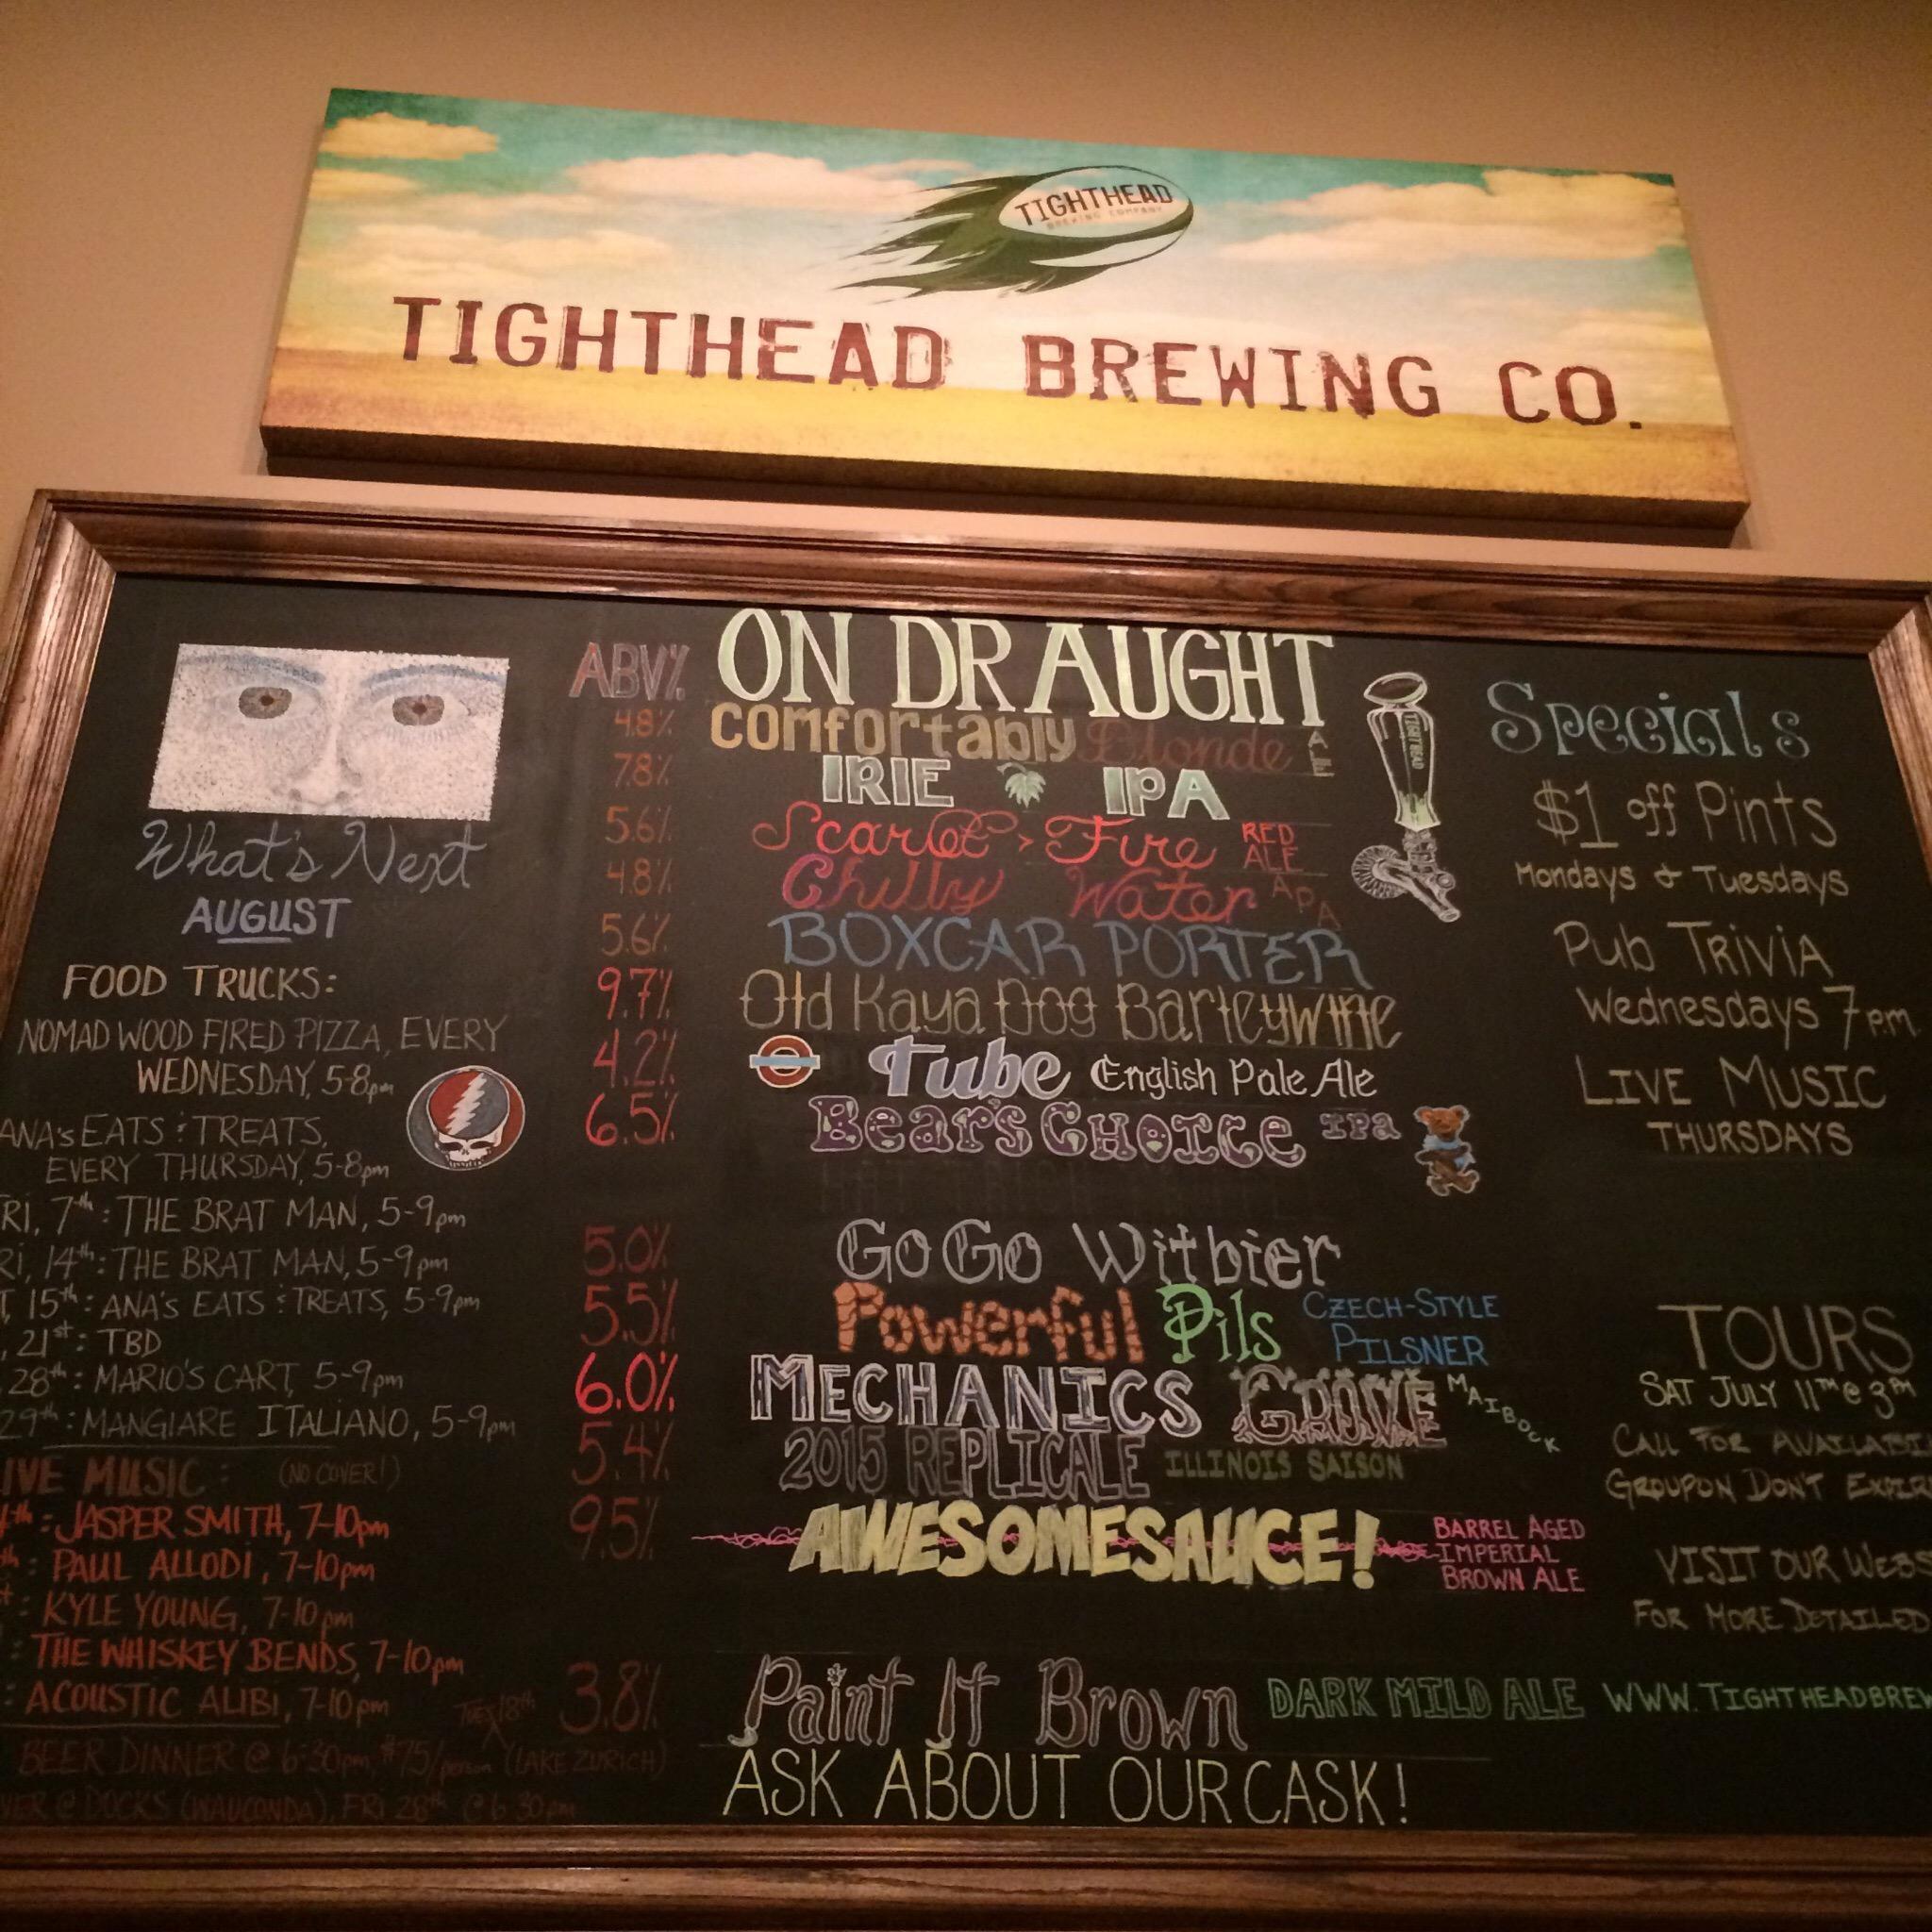 TIGHTHEAD
BREWING COMPANY
TIGHTHEAD BREWING CO.
What's Next
AUGUST
FOOD TRUCKS:
NOMAD WOOD FIRED PIZZA, EVERY
WEDNESDAY, 5-8pm
ANA'S EATS & TREATS,
EVERY THURSDAY, 5-8pm
RI, 7th: THE BRAT MAN, 5-9pm
RI, 14th: THE BRAT MAN, 5-9pm
T, 15th: ANA'S EATS & TREATS, 5-9pm
, 21st: TBD
28th: MARIO'S CART, 5-9pm
29th: MANGIARE ITALIANO, 5-9pm
IVE MUSIC: (NO COVER!)
th: JASPER SMITH, 7-10pm
th: PAUL ALLODI, 7-10pm
st: KYLE YOUNG, 7-10pm
: THE WHISKEY BENDS, 7-10pm
: ACOUSTIC ALIBI, 7-10pm
TUES 18th
BEER DINNER @ 6:30pm, $75/person (LAKE ZURICH)
VER @ DOCKS (WAUCONDA), FRI 28th @ 6:30pm
ABV% ON DRAUGHT
4.8% Comfortably Blonde ALE
7.8% IRIE IPA
5.6% Scarlet > Fire RED ALE
4.8% Chilly Water APA
5.6% BOXCAR PORTER
9.7% Old Kaya Dog Barleywine
4.2% Tube English Pale Ale
6.5% Bear's Choice IPA
5.0% GoGo Witbier
5.5% Powerful Pils CZECH-STYLE PILSNER
6.0% MECHANICS GROVE MAIBOCK
5.4% 2015 REPLICALE ILLINOIS SAISON
9.5% AWESOMESAUCE! BARREL AGED IMPERIAL BROWN ALE
3.8% Paint It Brown DARK MILD ALE
ASK ABOUT OUR CASK!
TIGHTHEAD
Specials
$1 off Pints
Mondays & Tuesdays
Pub Trivia
Wednesdays 7pm
LIVE MUSIC
THURSDAYS
TOURS
SAT JULY 11TH @ 3PM
CALL FOR AVAILABI
GROUPON DON'T EXPIR
VISIT OUR WEBS
FOR MORE DETAILED
WWW.TIGHTHEADBREW